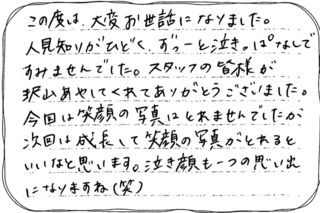 この度は、大変お世話になりました。
人見知りがひどく、ずっーと泣きっぱなしで
すみませんでした。スタッフの皆様が
沢山あやしてくれてありがとうございました。
今回は笑顔の写真はとれませんでしたが
次回は成長して笑顔の写真がとれると
いいなと思います。泣き顔も一つの思い出
になりますね(笑)